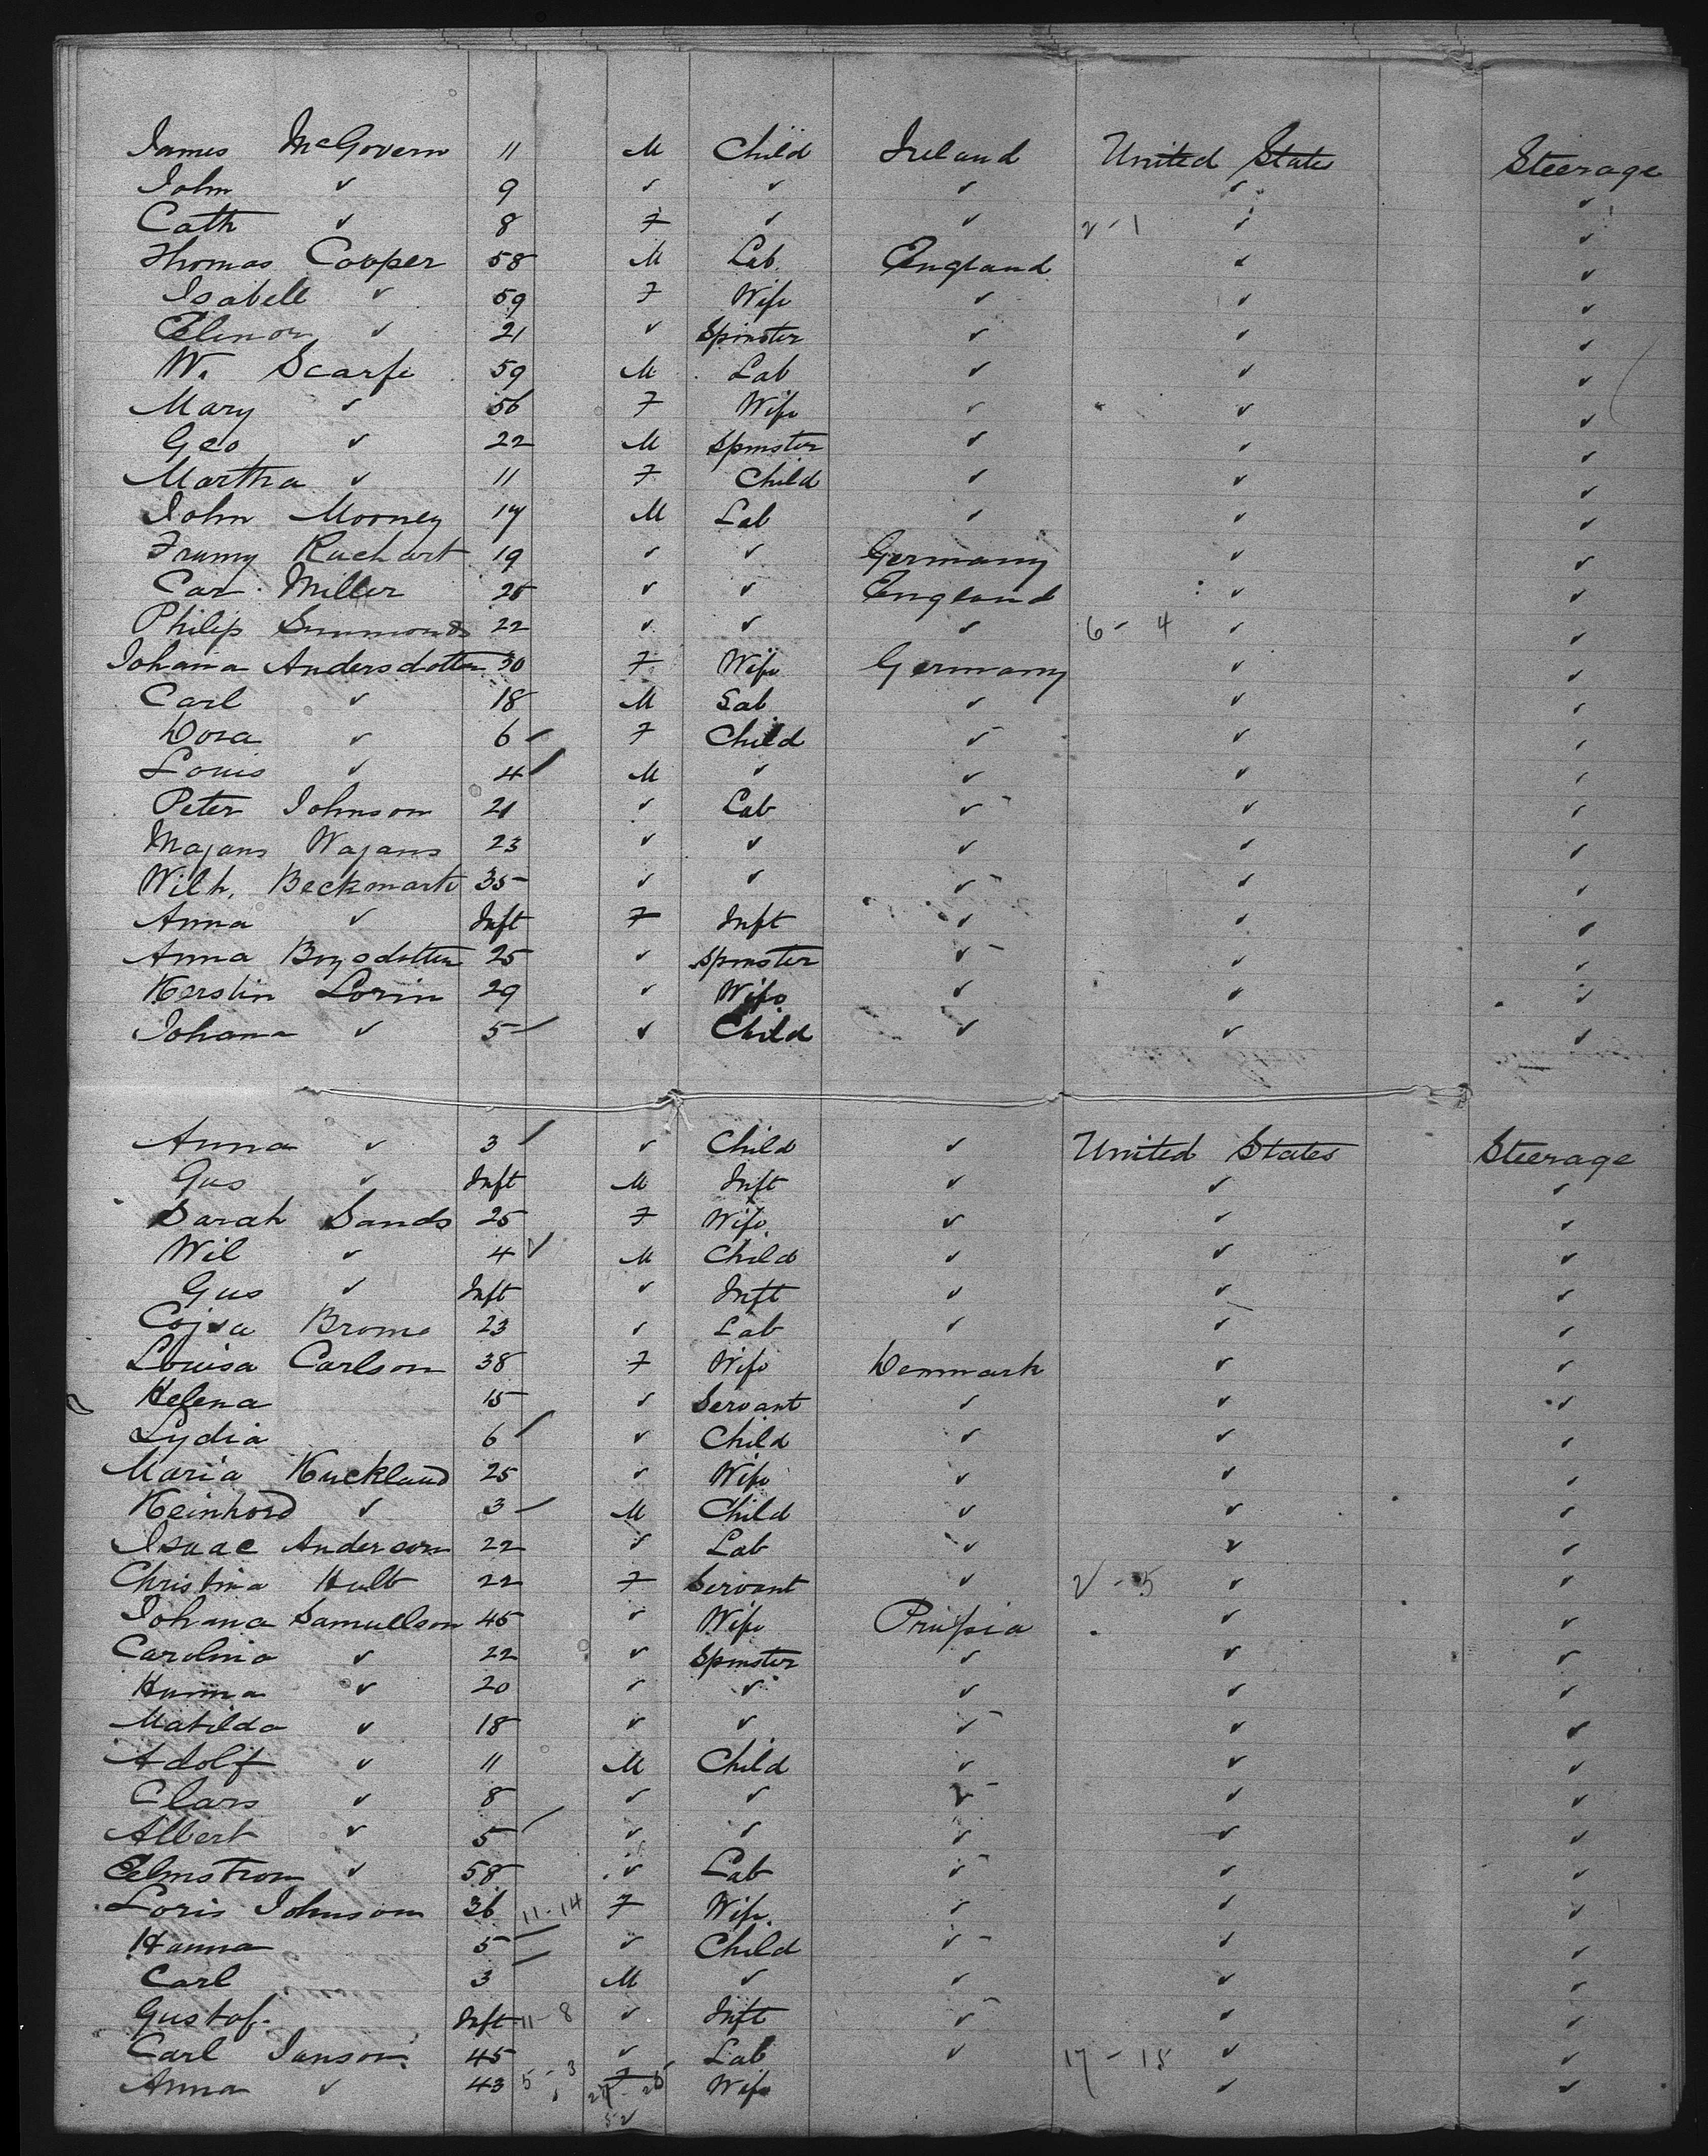 James McGovern 11 M Child Ireland United States Steerage
John ✓ 9 ✓ ✓ ✓ ✓ ✓
Cath ✓ 8 F ✓ ✓ 2-1 ✓ ✓
Thomas Cooper 58 M Lab. England ✓ ✓
Isabell ✓ 59 F Wife ✓ ✓ ✓
Elinor ✓ 21 ✓ Spinster ✓ ✓ ✓
W. Scarfe 59 M Lab ✓ ✓ ✓
Mary ✓ 56 F Wife ✓ ✓ ✓
Geo ✓ 22 M Spinster ✓ ✓ ✓
Martha ✓ 11 F Child ✓ ✓ ✓
John Mooney 17 M Lab ✓ ✓ ✓
19 ✓ ✓ Germany ✓ ✓
Car Miller 25 ✓ ✓ England ✓ ✓
Philip Simmonds 22 ✓ ✓ ✓ 6-4 ✓ ✓
Johana Andersdotten 30 F Wife Germany ✓ ✓
Carl ✓ 18 M Lab ✓ ✓ ✓
Dora ✓ 6 F Child ✓ ✓ ✓
Louis ✓ 4 M ✓ ✓ ✓ ✓
Peter Johnson 21 ✓ Lab ✓ ✓ ✓
Majans Wajans 23 ✓ ✓ ✓ ✓ ✓
Wilh. 35 ✓ ✓ ✓ ✓ ✓
Anna ✓ Inft F Inft ✓ ✓ ✓
Anna 25 ✓ Spinster ✓ ✓ ✓
Kerstin Lorin 29 ✓ Wife ✓ ✓ ✓
Johana ✓ 5 ✓ Child ✓ ✓ ✓
Anna ✓ 3 ✓ Child ✓ United States Steerage
Gus ✓ Inft M Inft ✓ ✓ ✓
Sarah Sands 25 F Wife ✓ ✓ ✓
Wil ✓ 4 M Child ✓ ✓ ✓
Gus ✓ Inft ✓ Inft ✓ ✓ ✓
Cajsa Brome 23 ✓ Lab ✓ ✓ ✓
Louisa Carlson 38 F Wife Denmark ✓ ✓
Helena 15 ✓ Servant ✓ ✓ ✓
Lydia 6 ✓ Child ✓ ✓ ✓
Maria 25 ✓ Wife ✓ ✓ ✓
✓ 3 M Child ✓ ✓ ✓
Isaac Anderson 22 ✓ Lab ✓ ✓ ✓
Christina Hult 22 F Servant ✓ 2-5 ✓ ✓
Johana Samuellson 45 ✓ Wife Prussia ✓ ✓
Carolina ✓ 22 ✓ Spinster ✓ ✓ ✓
Hanna ✓ 20 ✓ ✓ ✓ ✓ ✓
Matilda ✓ 18 ✓ ✓ ✓ ✓ ✓
Adolf ✓ 11 M Child ✓ ✓ ✓
Clars ✓ 8 ✓ ✓ ✓ ✓ ✓
Albert ✓ 5 ✓ ✓ ✓ ✓ ✓
Elmstrom ✓ 58 ✓ Lab ✓ ✓ ✓
Loris Johnson 36 11-14 F Wife ✓ ✓ ✓
Hanna 5 ✓ Child ✓ ✓ ✓
Carl 3 M ✓ ✓ ✓ ✓
Gustaf. Inft 11-8 ✓ Inft ✓ ✓ ✓
Carl Janson 45 ✓ Lab ✓ 17-15 ✓ ✓
Anna ✓ 43 5-3 F Wife ✓ ✓
52